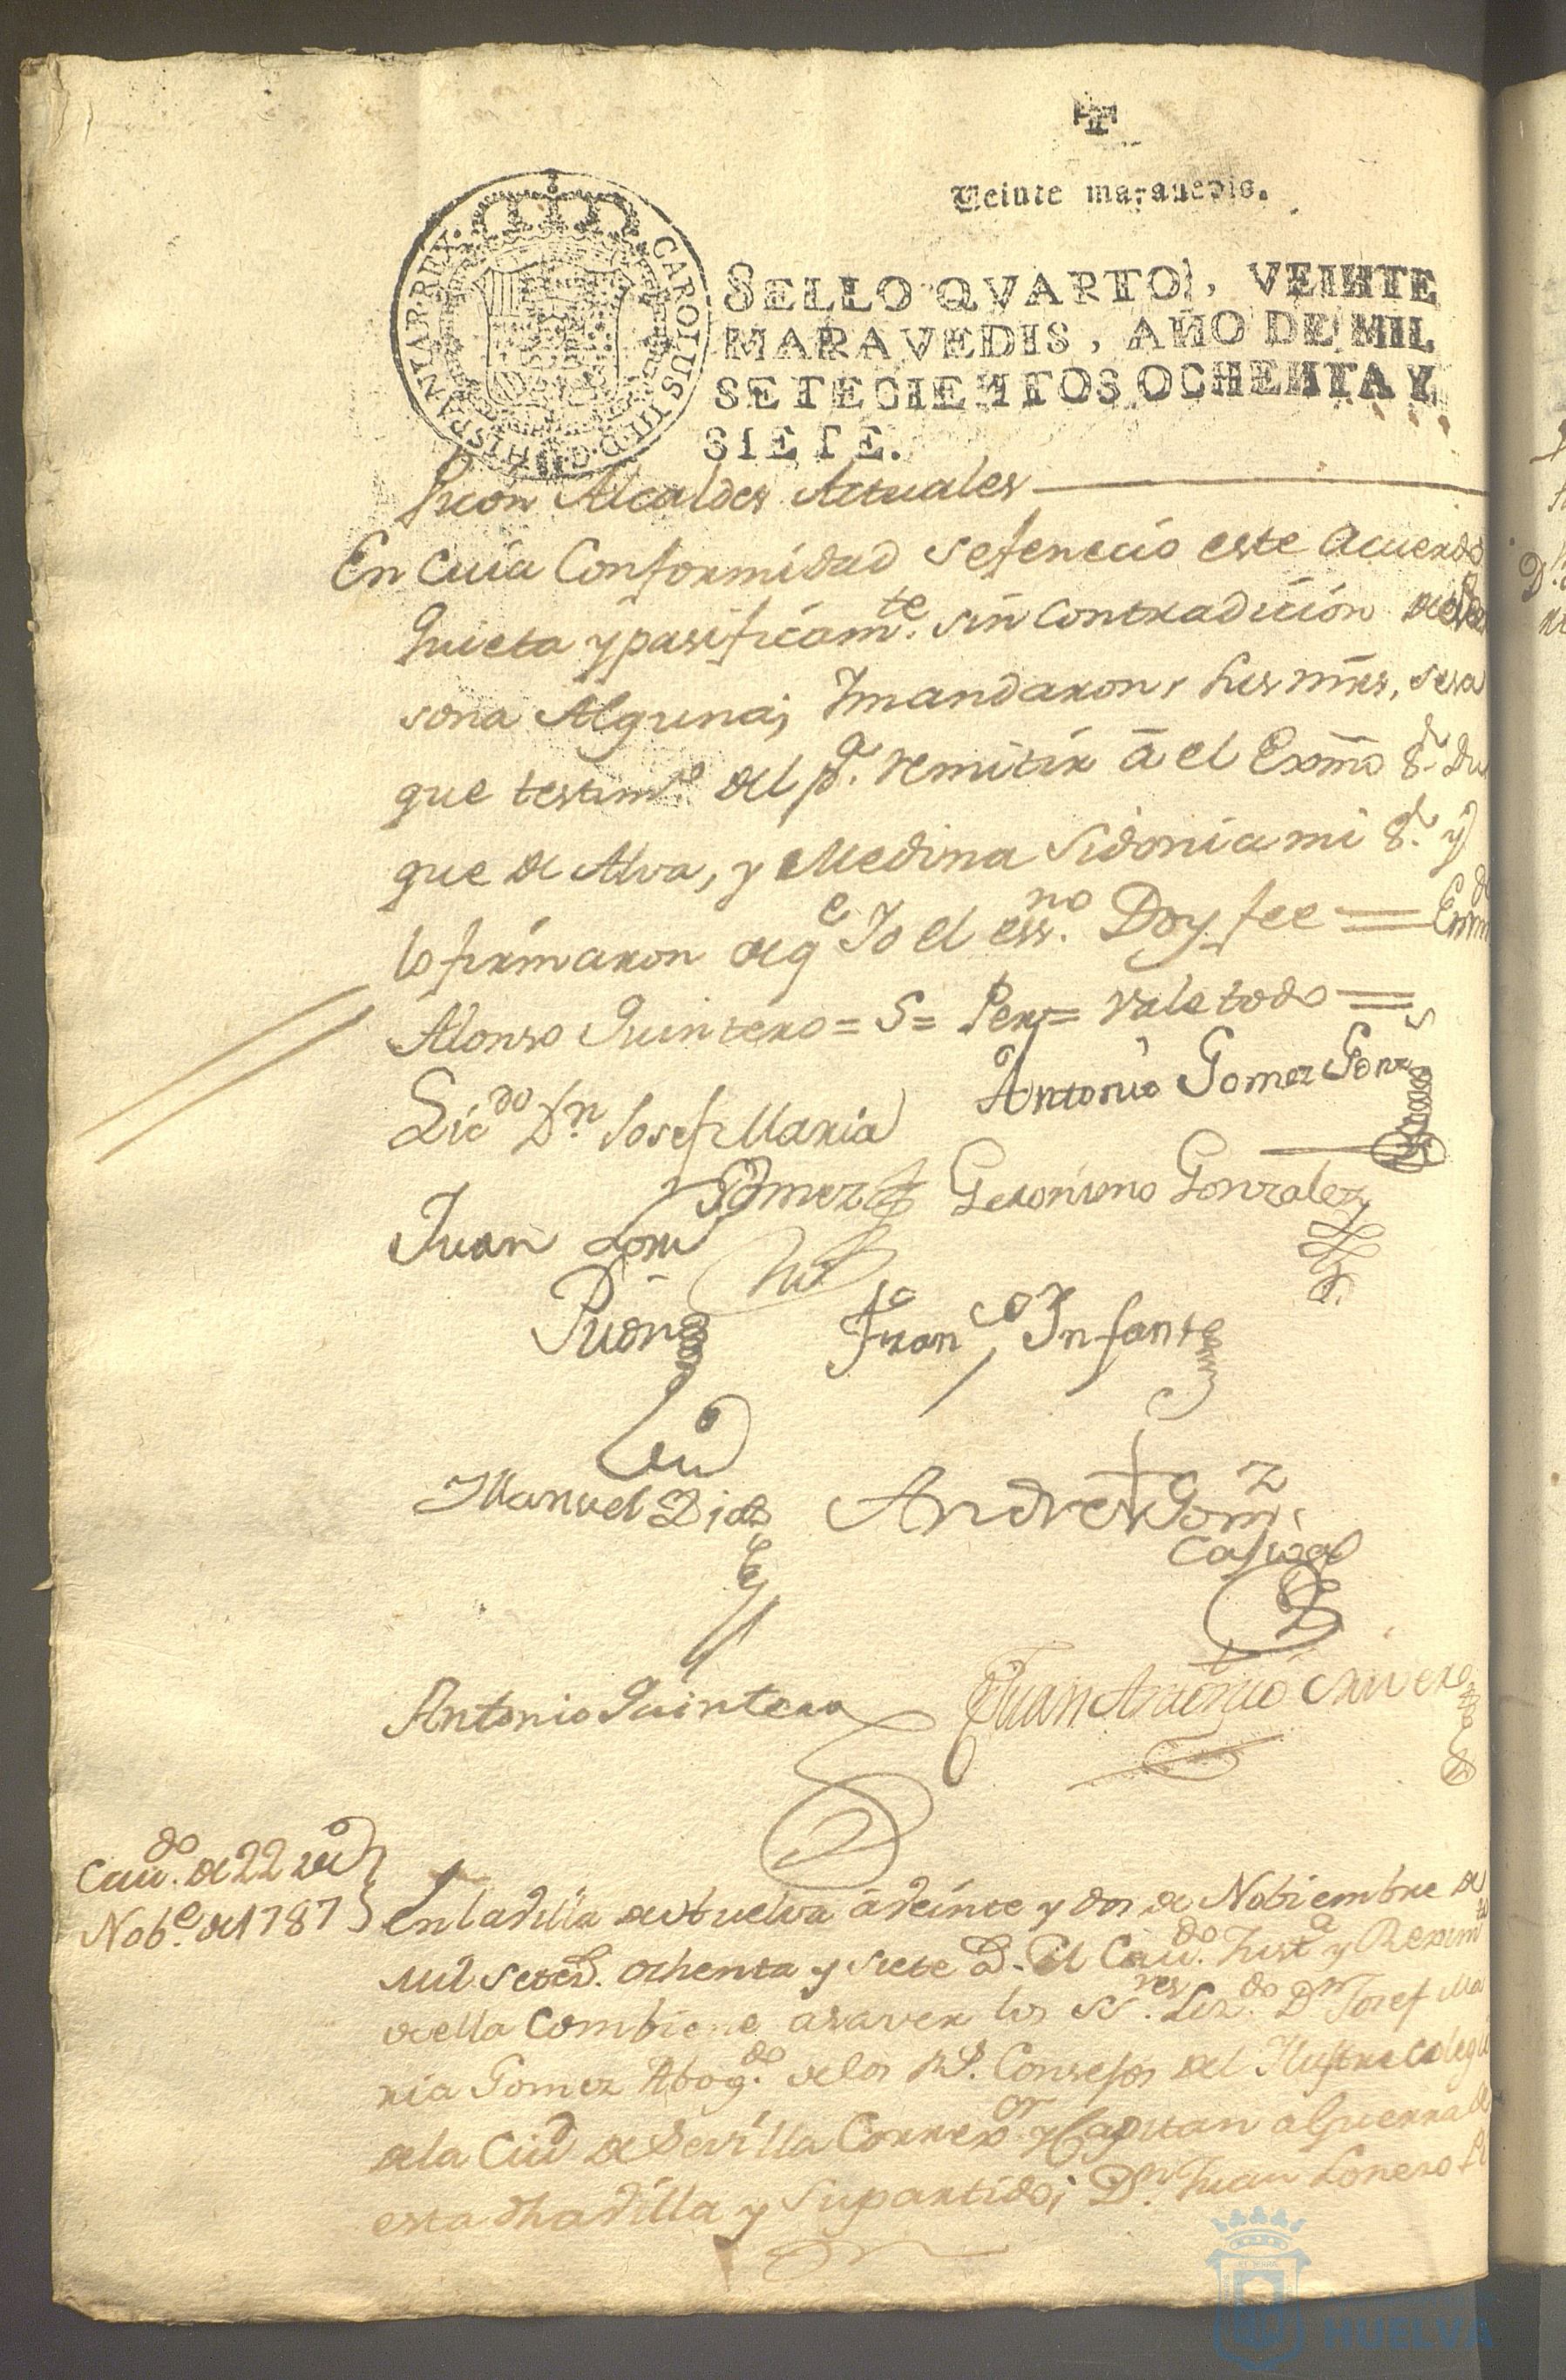 Veinte maravedis.
CAROLUS III D. G. HISPANIAR. REX.
SELLO QVARTO, VEINTE
MARAVEDIS, AÑO DE MIL
SETECIENTOS OCHENTA Y
SIETE.
Alcaldes Actuales
En Cuia Conformidad sefenecio este Acuerdo
Quieta ypasificamte. sin Contradicion
sona Alguna; Ymandaron, sus mrs, sesa
que testimo. del pa. remitir â el Exmo Sr. Du
que de Alva, y Medina Sidonia mi Sr. y
lo firmaron deqe Yo el essno. Doy fee =
Alonso Quintero = S = Per = Vale todo =
Antonio Gomez Gonz
Licdo Dn Josef Maria
Gomez
Geronimo Gonzalez
Juan
Franco Infante
Manuel Dias
Andres Gomz
Antonio Quintero
Juan Antonio
Cavdo. de 22 de
Nobe. de 1787
En la Villa de Huelva â Veinte y dos de Nobiembre de
mil setecs. ochenta y siete El Cavdo. Justa y Reximto
de ella Combiene asaver los SSres. Lizdo Dn Josef Ma
ria Gomez Abogdo. delos Rs. Consejos del Ylustre Colegio
dela Ciud de Sevilla Correxor y Capitan aGuerra de
esta dha Villa y Supartido; Dn. Juan Lorenzo
HUELVA